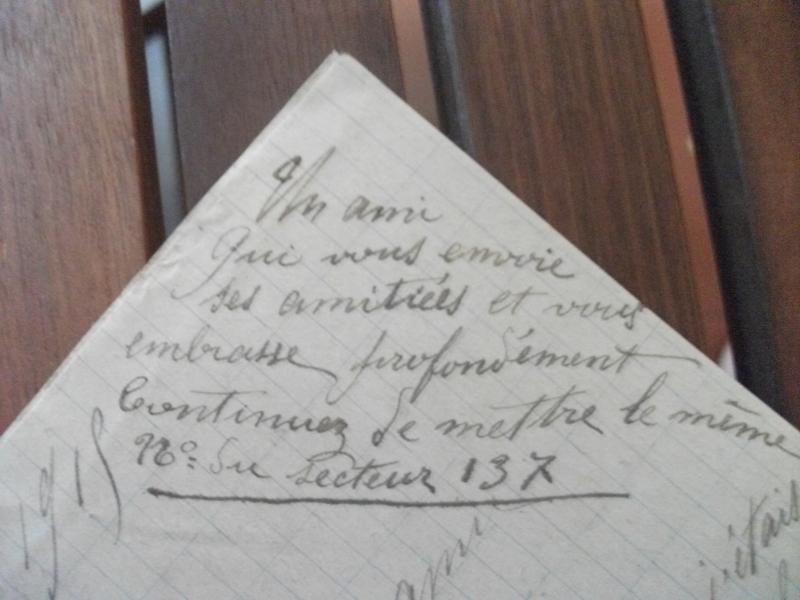 Un ami
Qui vous envoie
ses amitiées et vous
embrasse profondément
Continuez de mettre le même
No. du secteur 137
1915
ami
j'étais